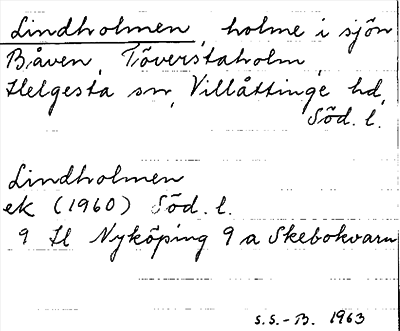 Lindholmen, holme i sjön
Båven, Töverstaholm,
Helgesta sn, Villåttinge hd,
Söd. l.
Lindholmen
ek (1960) Söd. l.
9 H Nyköping 9 a Skebokvarn
S.S.-B. 1963